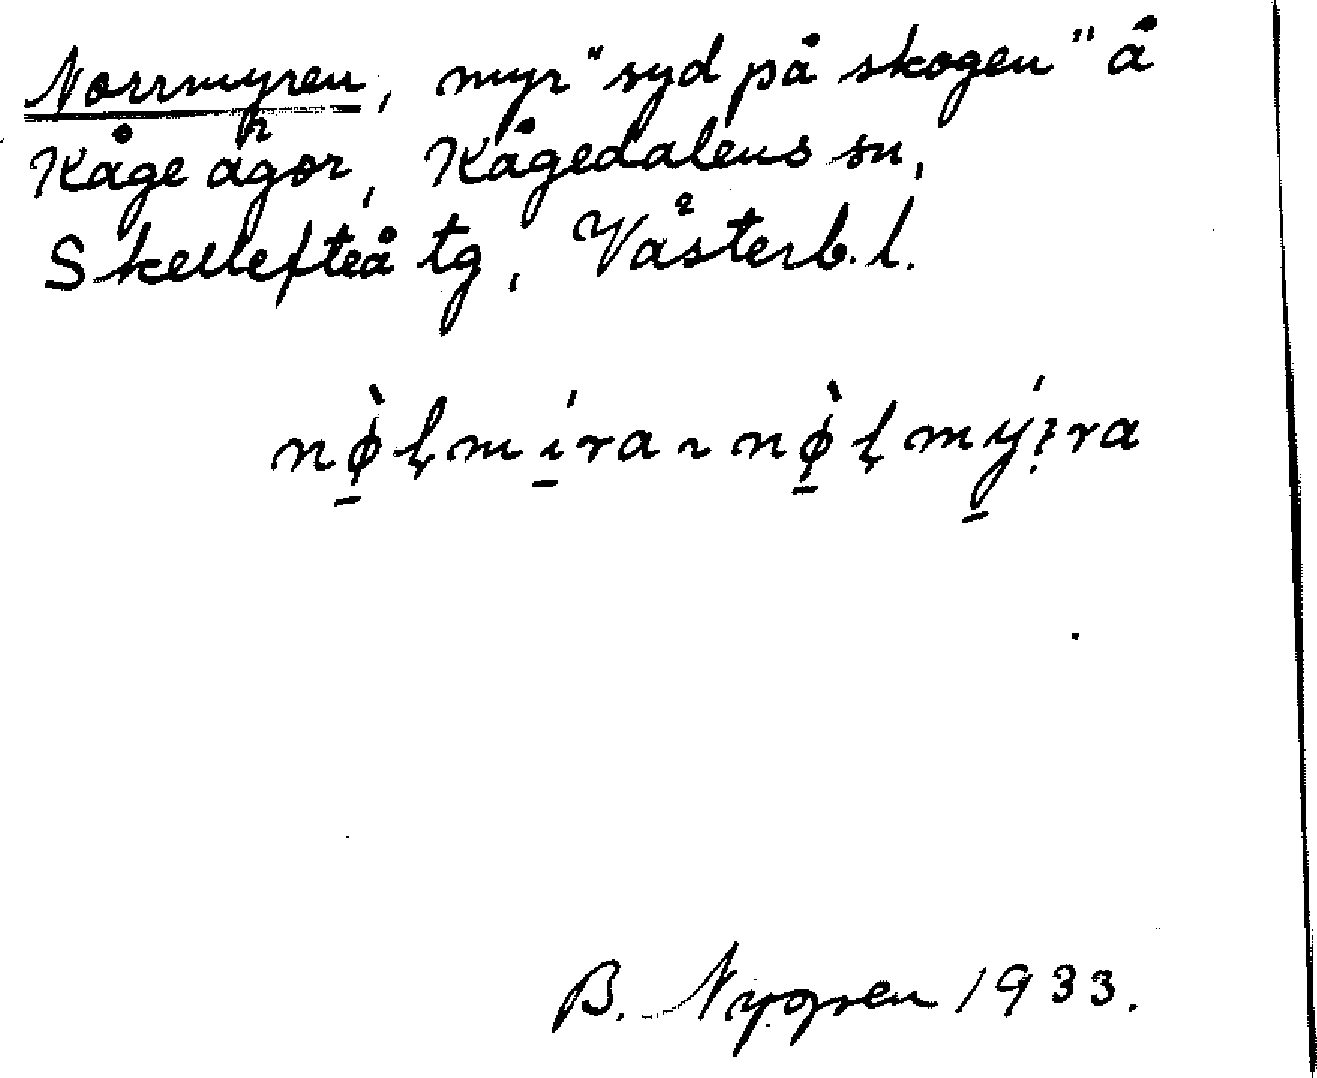 Norrmyren, myr "syd på skogen" å
Kåge ägor, Kågedalens sn,
Skellefteå tg, Västerb. l.
nø̱̀ɬmí̱ra ~ nø̱̀ɬmý̱i̯ra
B. Nygren 1933.